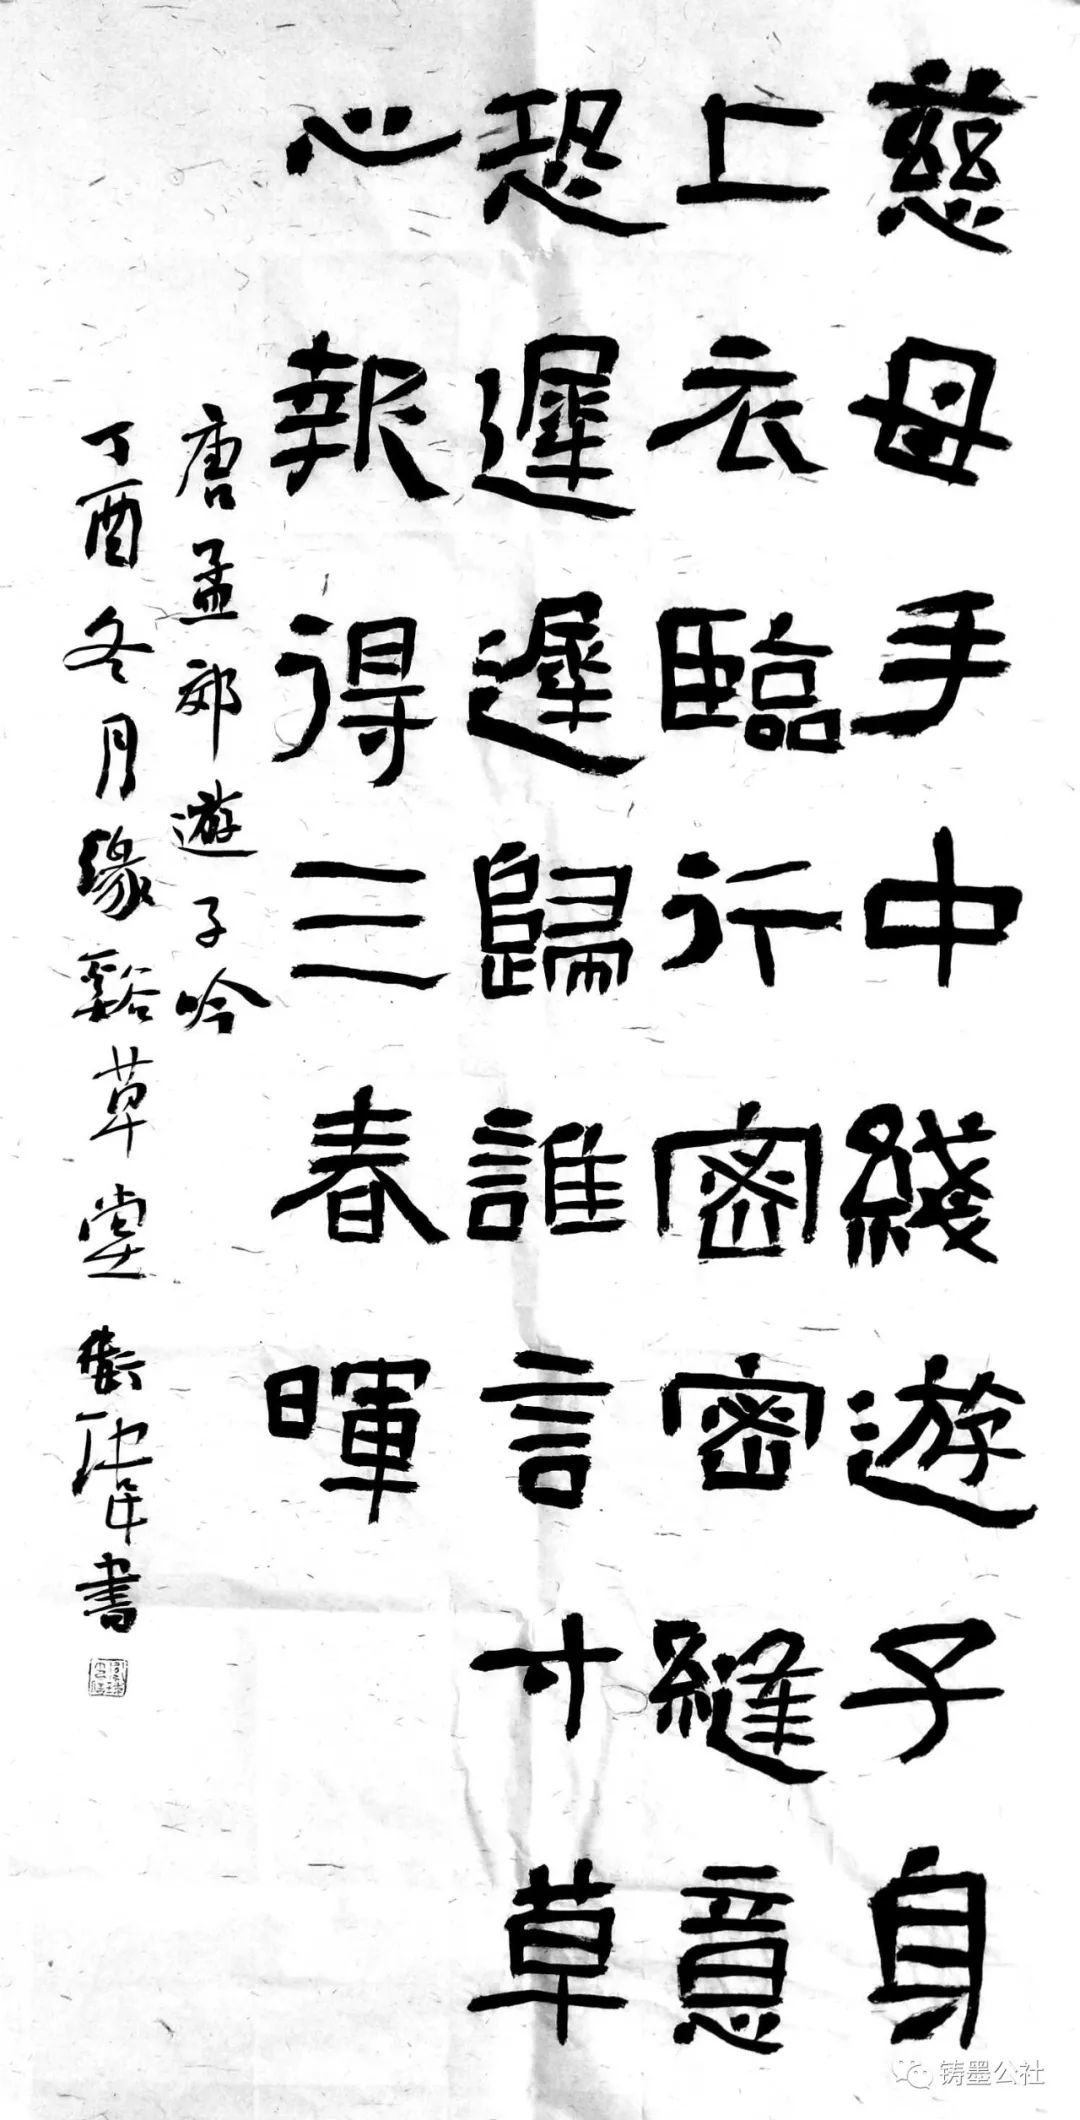 慈母手中綫遊子身
上衣臨行密密縫意
恐遲遲歸誰言寸草
心報得三春暉
唐孟郊遊子吟
丁酉冬月緣谿草堂書
铸墨公社